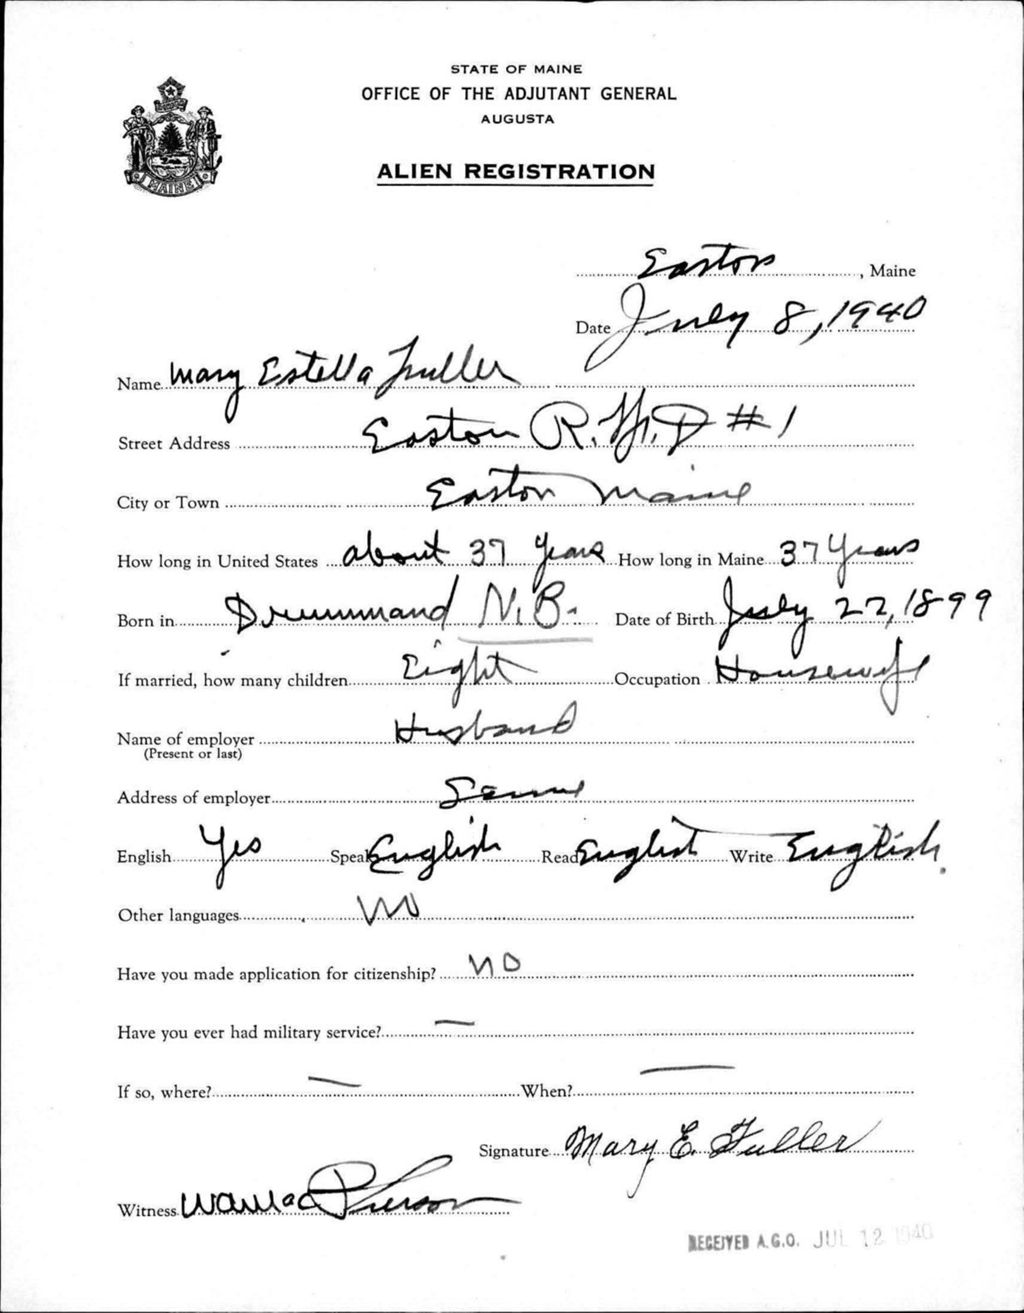 STATE OF MAINE
OFFICE OF THE ADJUTANT GENERAL
AUGUSTA
ALIEN REGISTRATION
MAINE
Easton, Maine
Date July 8, 1940
Name Mary Estella Fuller
Street Address Easton R.F.D #1
City or Town Easton Maine
How long in United States about 37 years How long in Maine 37 years
Born in Drummand N.B. Date of Birth July 22, 1899
If married, how many children Eight Occupation Housewife
Name of employer Husband
(Present or last)
Address of employer Same
English Yes Speak English Read English Write English.
Other languages No
Have you made application for citizenship? no
Have you ever had military service? —
If so, where? — When? —
Signature Mary E. Fuller
Witness Pierson
RECEIVED A.G.O. JUL 12 1940